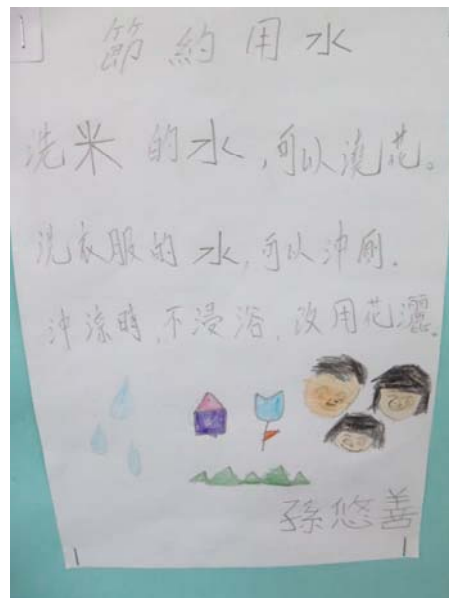 1
節約用水
洗米的水,可以澆花。
洗衣服的水,可以沖厠.
沖涼時,不浸浴,改用花灑。
孫悠善